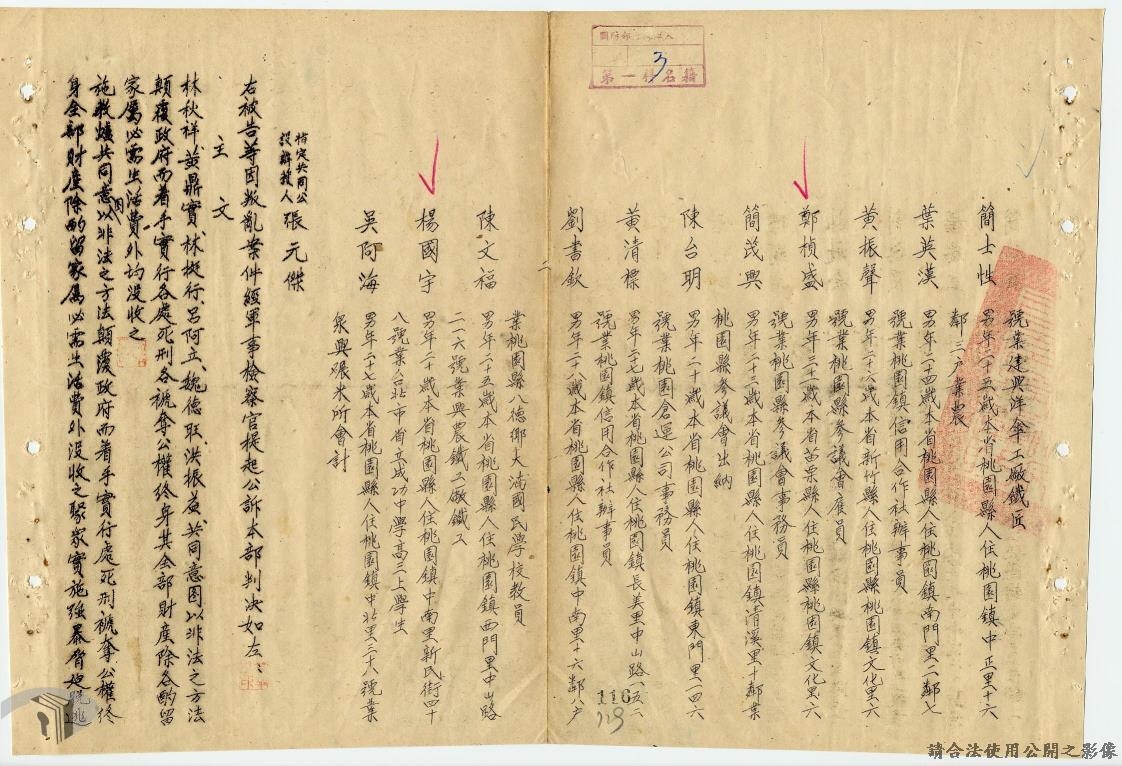 號業建興洋傘工廠鐵匠
簡士性 男年二十五歲本省桃園縣人住桃園鎮中正里十六
鄰三戶業農
葉英漢 男年二十四歲本省桃園縣人住桃園鎮南門里二鄰七
號業桃園鎮信用合作社辦事員
黃振聲 男年二十六歲本省新竹縣人住桃園縣桃園鎮文化里六
號業桃園縣參議會雇員
鄭楨盛 男年三十二歲本省苗栗縣人住桃園縣桃園鎮文化里六
號業桃園縣參議會事務員
簡茂興 男年二十三歲本省桃園縣人住桃園鎮清溪里十鄰業
桃園縣參議會出納
陳台明 男年二十歲本省桃園縣人住桃園鎮東門里一四六
號業桃園倉運公司事務員
黃清標 男年二七歲本省桃園縣人住桃園鎮長美里中山路一五二
號業桃園鎮信用合作社辦事員
劉書欽 男年二十八歲本省桃園縣人住桃園鎮中南里十六鄰八戶
二
業桃園縣八德鄉大湳國民學校教員
陳文福 男年二十五歲本省桃園縣人住桃園鎮西門里中山路
二一六號業興農鐵工廠鐵工
楊國宇 男年二十歲本省桃園縣人住桃園鎮中南里新民街四十
八號業台北市省立成功中學高三上學生
吳阿海 男年二十七歲本省桃園縣人住桃園鎮中北里三十八號業
眾興碾米所會計
指定共同公
設辯護人 張元傑
右被告等因叛亂案件經軍事檢察官提起公訴本部判決如左：
主文
林秋祥黃鼎實林挺行呂阿立魏德旺洪振益共同意圖以非法之方法
顛覆政府而着手實行各處死刑各褫奪公權終身其全部財產除各酌留
家屬必需生活費外均沒收之
施教爐共同意圖以非法之方法顛覆政府而着手實行處死刑褫奪公權終
身全部財產除酌留家屬必需生活費外沒收之聚眾實施強暴脅迫脫逃
第一種名籍
3
116
119
請合法使用公開之影像